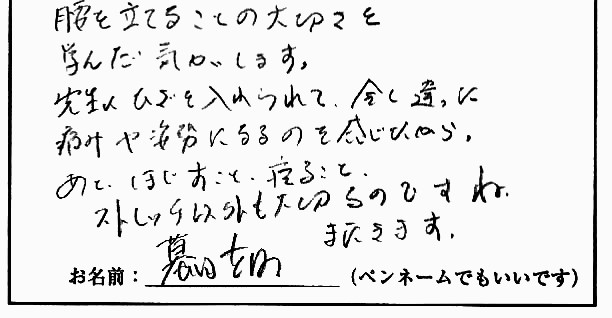 腰を立てることの大切さを
学んだ気がします。
先生にひざを入れられて、全く違った
痛みや姿勢になるのを感じながら、
あと、ほぐすこと、座ること、
ストレッチ以外も大切なのですね。
またきます。
お名前：(ペンネームでもいいです)